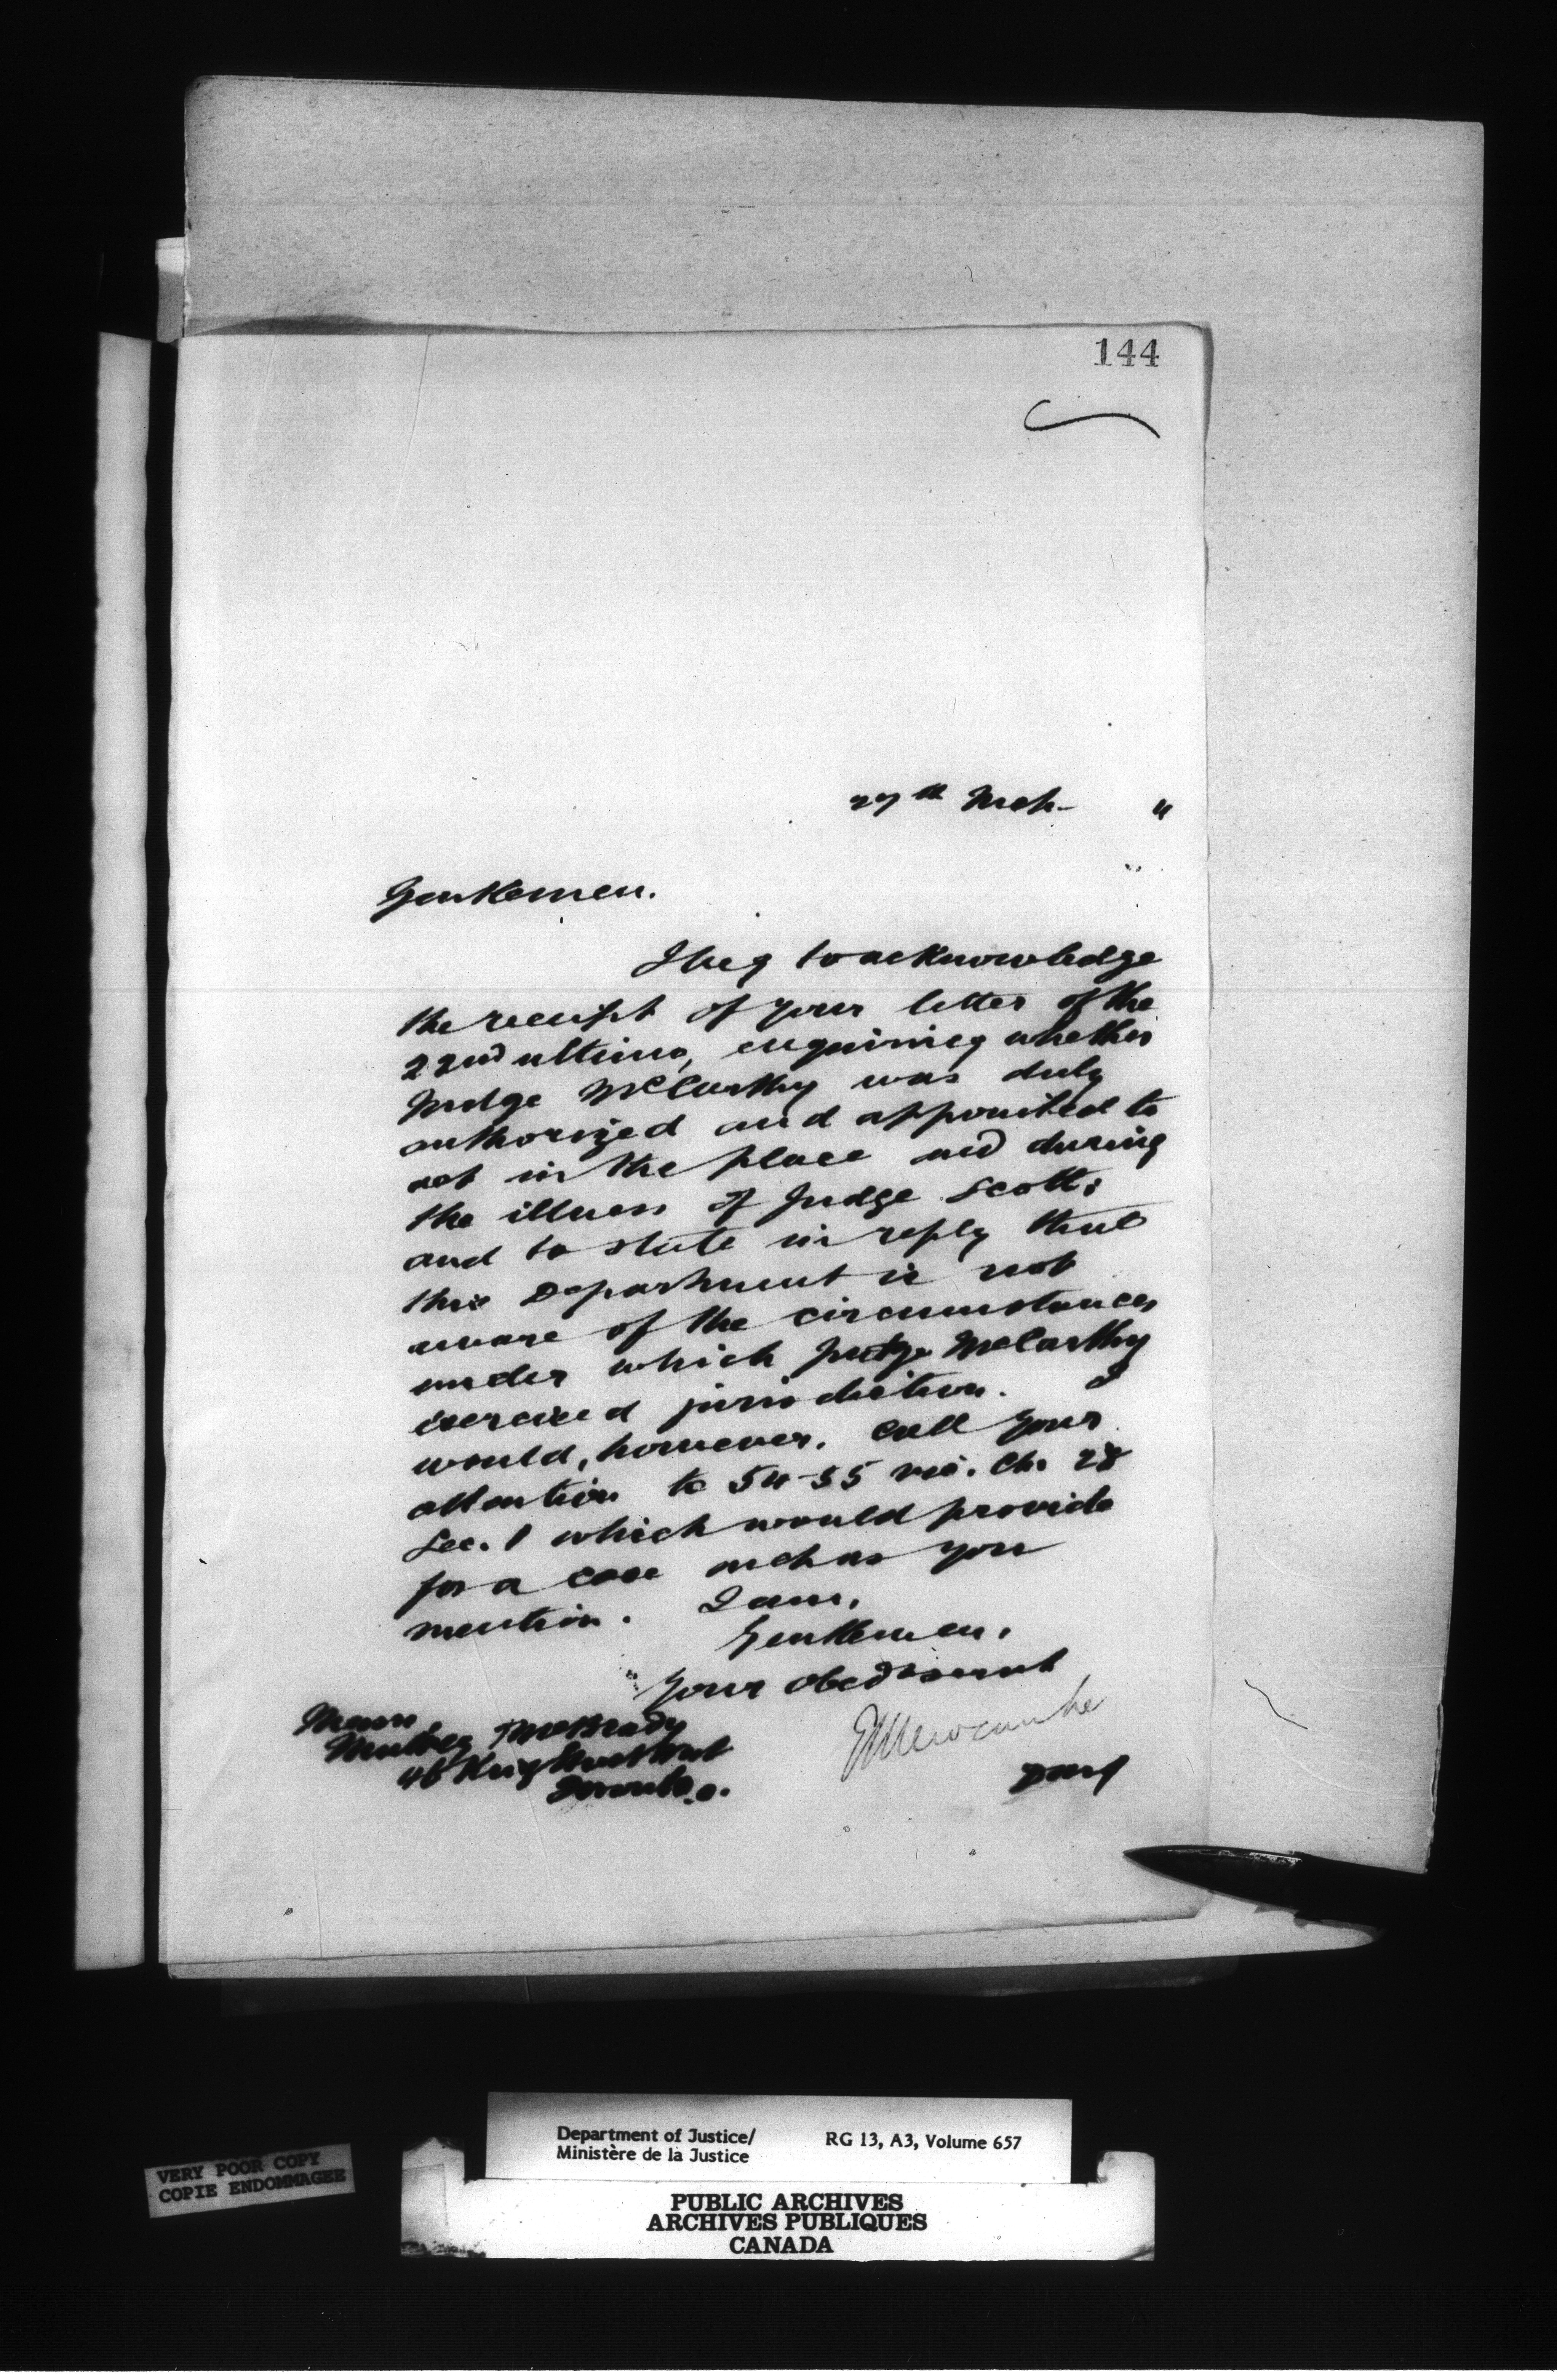 144
27th Mch. "
Gentlemen.
I beg to acknowledge
the receipt of your letter of the
22nd ultimo, enquiring whether
Judge McCarthy was duly
authorized and appointed to
act in the place and during
the illness of Judge Scott;
and to state in reply that
this Department is not
aware of the circumstances
under which Judge McCarthy
exercised jurisdiction. I
would, however, call your
attention to 54-55 Vic. Ch. 28
Sec. 1 which would provide
for a case such as you
mention. I am,
Gentlemen,
Your obed servant
Messrs.
McBrady
46 King Street West
Toronto. O.
ELNewcombe
DMJ
Department of Justice/
Ministère de la Justice
RG 13, A3, Volume 657
VERY POOR COPY
COPIE ENDOMMAGEE
PUBLIC ARCHIVES
ARCHIVES PUBLIQUES
CANADA